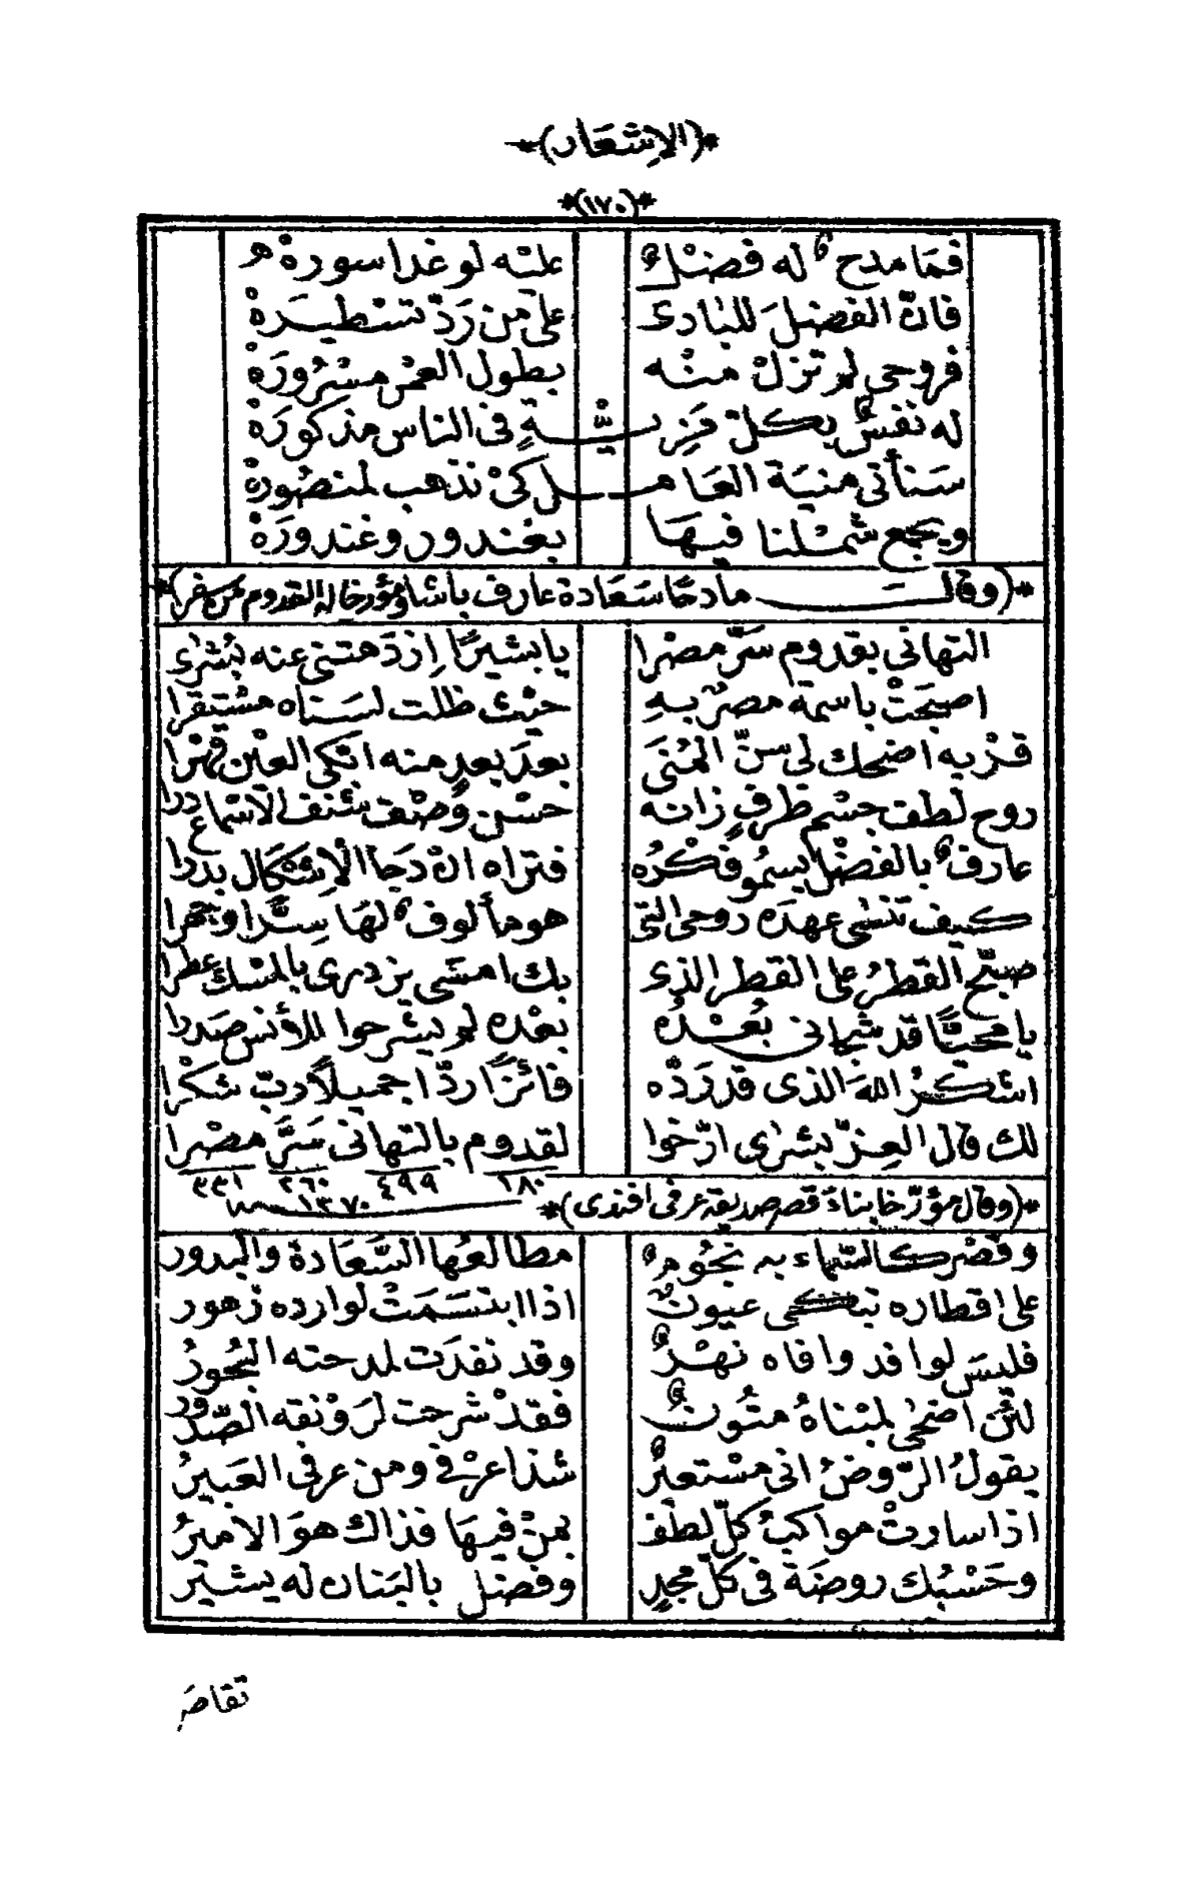 *(الاشعار)*
*(١٧٠)*
فمَا مدحٌ له فضْلٌ عليْه لو غدا سورهْ
فانّ الفضلَ للبادى على من رَدّ تسْطيَرهْ
فروحى لم تزلْ منْه بطول العمْر مسْرُورَهْ
له نفسٌ بكلّ مَزِيَّةٍ فى الناس مذكورَهْ
سَنأتى منيَة العَامل كىْ نذهب لمنصُورهْ
ويجمع شمْلنا فيهَا بغندور وغندورَهْ
*(وقالت مادحًا سَعَادة عارف باشا ومؤرخا له القدوم من سفر)*
التهانى بقدوم سَرَّ مصْرا يا بشيرًا زدْ هتنى عنه بُشْرى
اصبحَتْ باسمة مصرٌ بهِ حيْث ظلت لسَناه مسْتقرا
قدْ به اضحك لى سنّ المُنَى بعدَ بعدٍ منه ابْكى العيْن قهْرا
روح لطف جسْم ظرفٍ زانه حسْن وصْف شنف الاسْماع درا
عارفٌ بالفضْل يسمُو فكْرُه فتراه انْ دَجَا الْاِشكال بدرا
كيف تنسْى عهدَه روحى التى هو مألوفٌ لهَا سِرًّا وجهرا
صبّح القطرُ على القطر الذى بك امسَى يزدرى بالمسْك عطرا
يا محيًّا قد شجانى بُعْدُه بعْده لم يشرحوا للأنس صَدرا
اشكرُ اللهَ الذى قد رَدّه فائزًا ردّا جميلاً دبّ شكْرا
لك قال العِزّ بشرٰى ارّخوا لقدوم بالتهانى سَرَّ مصْرا
١٨٠ ٤٩٩ ٢٦٠ ٣٣١
١٢٧٠
*(وقال مؤرّخا بناء قصر صديقه عرفى افندى)*
وقصْر كالسّماء به نجُومٌ مطالعُها السَّعَادة والبدور
على اقطاره تبكى عيونٌ اذا ابتسَمَتْ لوارده زهور
فليسَ لوافد وافاه نهْرٌ وقد نفدَت لمدحته البُحورُ
لئن اضحٰى لمبْناهُ متُونٌ فقدْ شرحت لرَوْنقه الصّدور
يقولُ الرّوضُ انى مسْتعيرٌ شذا عرْفى ومن عرفى العَبيرُ
اذا سارتْ مواكبُ كلّ لطف بمنْ فيهَا فذاك هوَ الاميرُ
وحَسْبُك روضَة فى كلّ مجدٍ وفضل بالبَنان له يسْير
تقاصَر